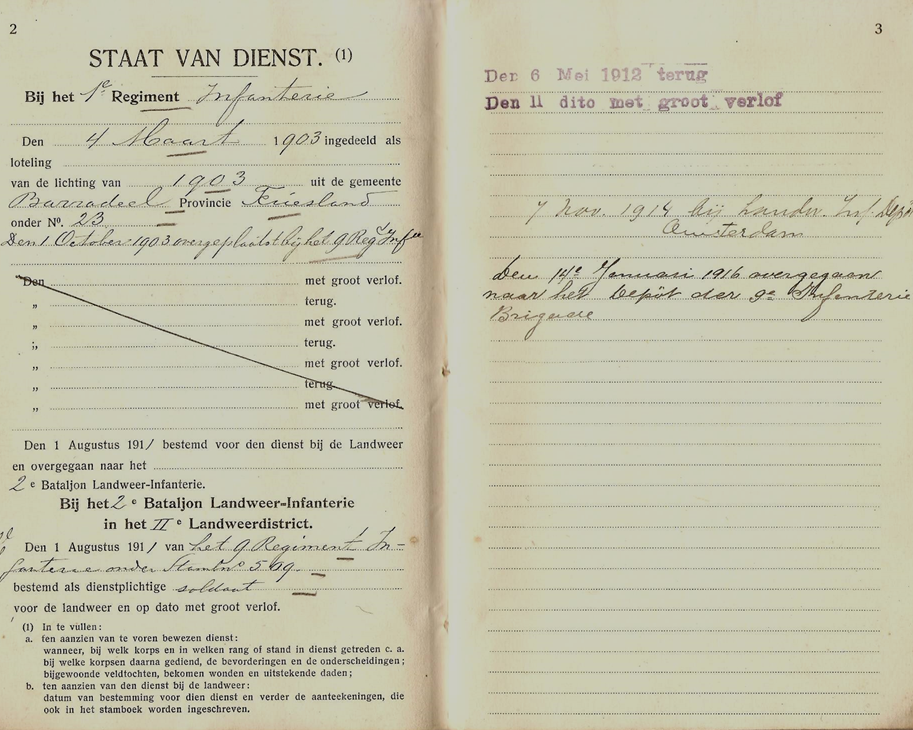 2
STAAT VAN DIENST. (1)
Bij het 1e Regiment Infanterie
Den 4 Maart 1903 ingedeeld als
loteling
van de lichting van 1903 uit de gemeente
Barradeel Provincie Friesland
onder No. 23
Den 1 October 1903 overgeplaatst bij het 9 Reg Infie
Den met groot verlof.
„ terug.
„ met groot verlof.
„ terug.
„ met groot verlof.
„ terug.
„ met groot verlof.
Den 1 Augustus 1911 bestemd voor den dienst bij de Landweer
en overgegaan naar het
2e Bataljon Landweer-Infanterie.
Bij het 2e Bataljon Landweer-Infanterie
in het IIe Landweerdistrict.
Den 1 Augustus 1911 van het 9 Regiment In-
fanterie onder Stambno
bestemd als dienstplichtige soldaat
voor de landweer en op dato met groot verlof.
(1) In te vullen:
a. ten aanzien van te voren bewezen dienst:
wanneer, bij welk korps en in welken rang of stand in dienst getreden c. a.
bij welke korpsen daarna gediend, de bevorderingen en de onderscheidingen;
bijgewoonde veldtochten, bekomen wonden en uitstekende daden;
b. ten aanzien van den dienst bij de landweer:
datum van bestemming voor dien dienst en verder de aanteekeningen, die
ook in het stamboek worden ingeschreven.
3
Den 6 Mei 1912 terug
Den 11 dito met groot verlof
7 Nov. 1914 bij Landw. Inf. Depôt
Amsterdam
Den 14e Januari 1916 overgegaan
naar het Depôt der 9e Infanterie
Brigade